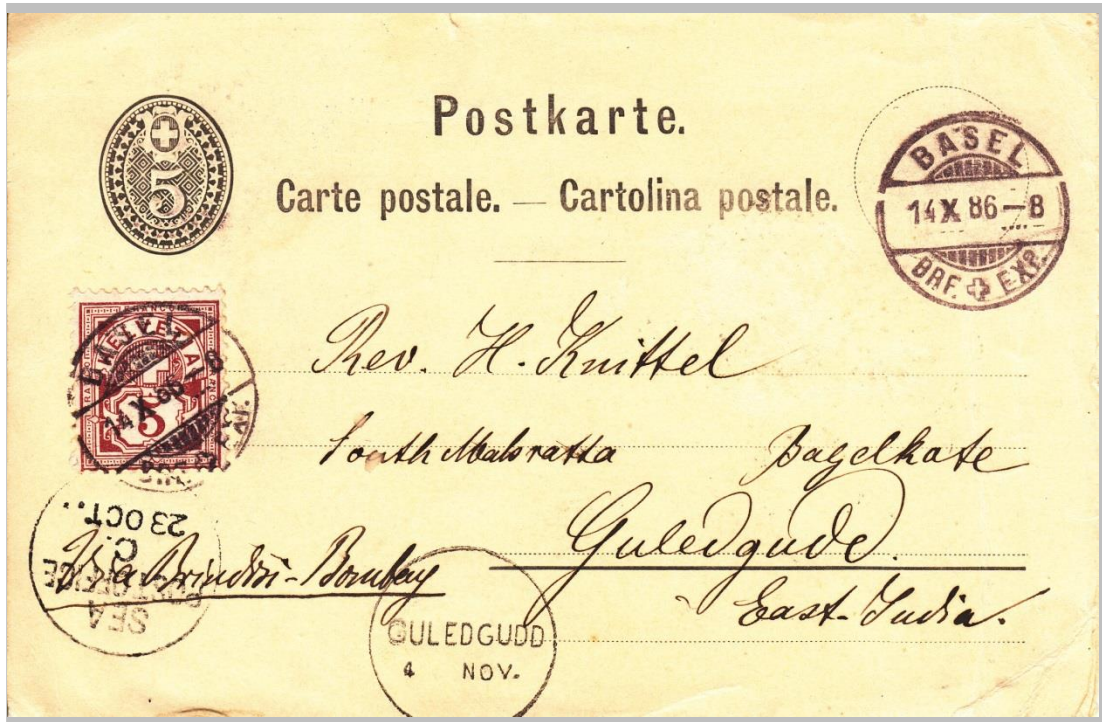 Postkarte.
5
Carte postale. — Cartolina postale.
BASEL
14 X 86—8
BRF. EXP.
HELVETIA
14 X 86—8
5
Rev. H. Knittel
South Mahratta Bagelkote
Guledgudd.
Via Brindisi-Bombay
East-India.
SEA
POST OFFICE
C.
23 OCT..
GULEDGUDD
4 NOV.